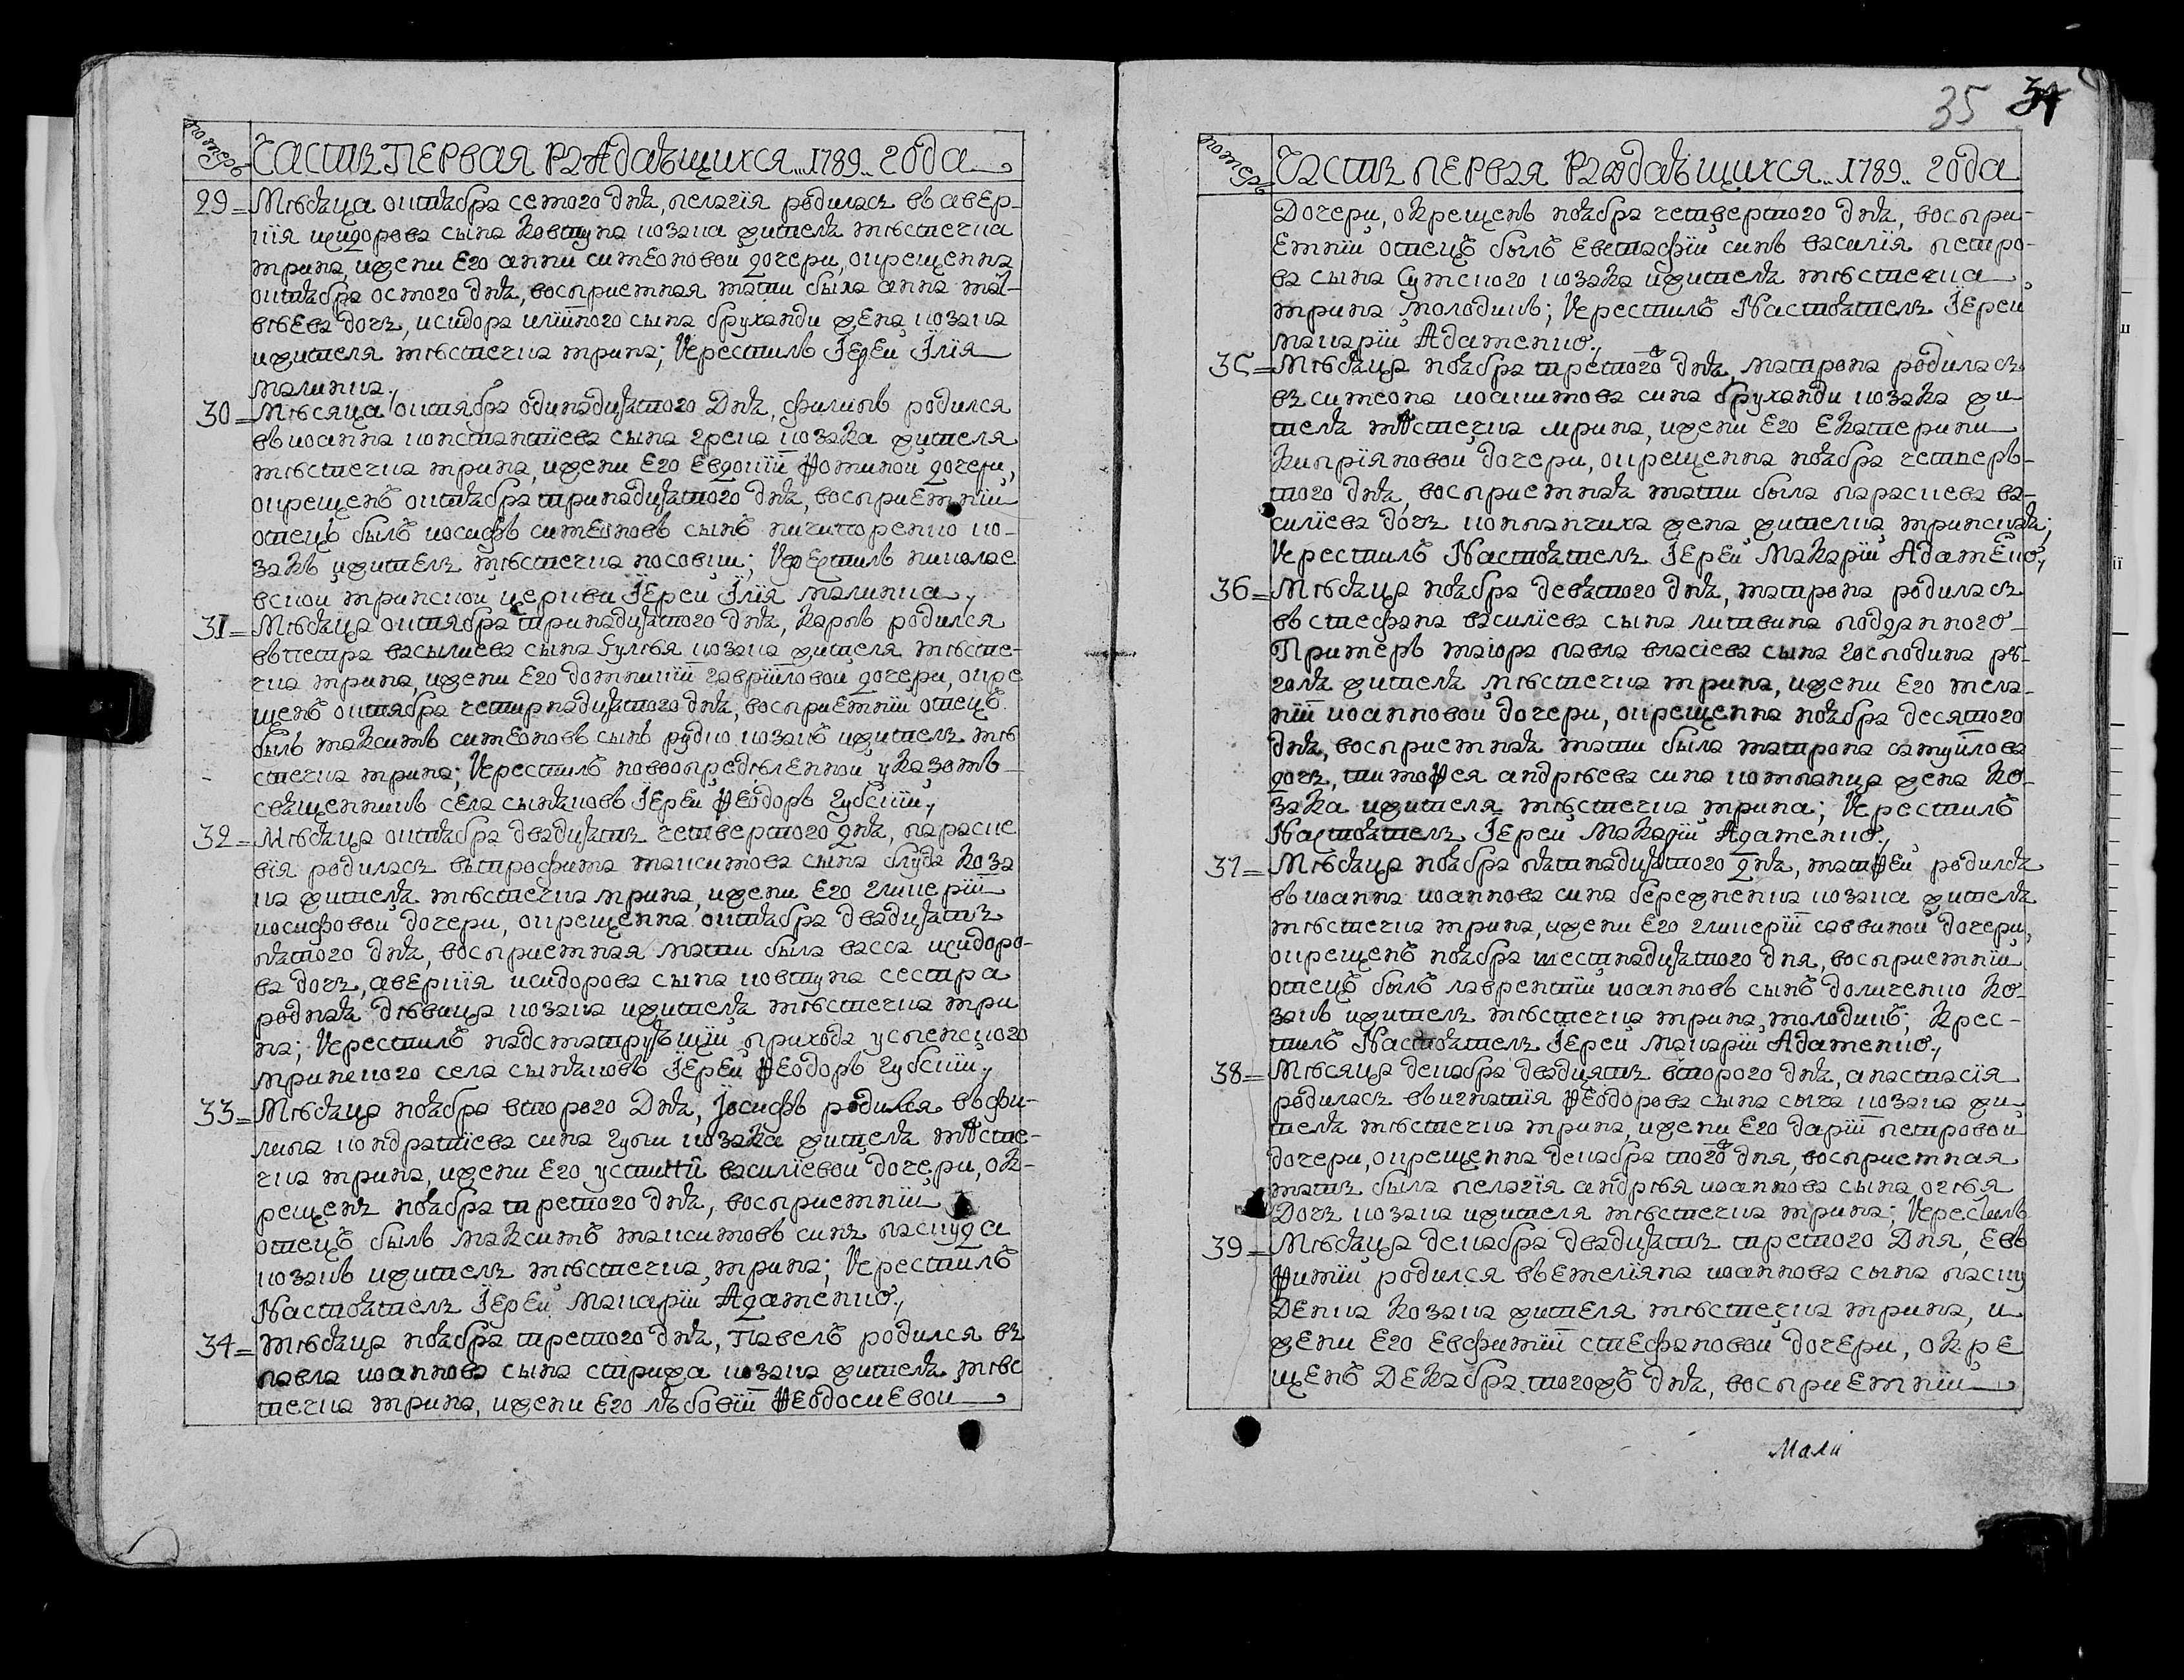 номеръ
ЧАСТЬ ПЕРВАЯ РАЖДАЮЩИХСЯ ... 1789 .. года
29 = Мѣсяца октября семого дня, пелагія родилась въ авер-
кія исидорова сына Ковтуна козака жителя мѣстечка
мрина, ижени Его анни симеоновой дочери, окрещенна
октября осмого дня, восприемная мати была анна мат-
вѣева дочь, исидора илііного сына бруханди жена козака
ижителя мѣстечка мрина; Крестилъ Іерей Ілія
малинка.
30 = Мѣсяца октября одинадцатого Дня, филипъ родился
въ иоанна константіева сына грека козака жителя
мѣстечка мрина, ижени Его Евдокіи Ѳоминой дочери,
окрещенъ октября тринадцатого дня, восприЕмній
отецъ былъ иосифъ симеоновъ сынъ ничипоренко ко-
закъ ижитель мѣстечка носовки; Крестилъ николае
вской мринской церкви Іерей Ілія малинка.,
31 = Мѣсяца октября тринадцатого дня, Карпъ родился
въ петра василиева сына Гулѣя козака жителя мѣсте-
чка мрина, ижени Его домникіи гавріиловой дочери, окре
щенъ октября четирнадцатого дня, восприЕмній отецъ
былъ максимъ симеоновъ сынъ рудко козакъ ижитель мѣ
стечка мрина; Крестилъ новоопредѣленной указомъ
священникъ села сыняковъ Іерей Ѳеодоръ Губскій.,
32 = Мѣсяца октября двадцать четвертого дня, параске
вія родилась въ трофима максимова сына блуда коза
ка жителя мѣстечка мрина, ижени Его гликеріи
иосифовой дочери, окрещенна октября двадцать
пятого дня, восприемная мати была васса исидоро-
ва дочь, аверкія исидорова сына ковтуна сестра
родная дѣвица козака ижителя мѣстечка мри
на; Крестилъ надсматрующій прихода успенского
мринского села сыняковъ Іерей Ѳеодоръ Губскій.,
33 = Мѣсяца ноября второго Дня, Іосифъ родился въ фи-
липа кондратіева сина гупи козака жителя мѣсте-
чка мрина, ижени Его устиніи василіевой дочери, ок-
рещенъ ноября третого дня, восприемній
отецъ былъ максимъ максимовъ синъ паскуда
козакъ ижитель мѣстечка мрина; Крестилъ
Настоятель Іерей макарій Адаменко.,
34 = мѣсяца ноября третого дня, Павелъ родился въ
павла иоаннова сына стрижа козака жителя мѣс
течка мрина, ижени Его любовіи Ѳеодосиевой
35 34
номеръ
ЧАСТЬ ПЕРВАЯ РАЖДАЮЩИХСЯ .. 1789 .. года
Дочери, окрещенъ ноября четвертого дня, воспри-
Емній отецъ былъ Евстафій синъ василія петро-
ва сына Сумского козака ижителя мѣстечка
мрина молодикъ; Крестилъ Настоятель Іерей
макарій Адаменко.,
35 = Мѣсяца ноября третого дня, матрона родилась
въ симеона иоакимова сина бруханди козака жи-
теля мѣстечка мрина, ижени Его Екатерини
Кипріяновой дочери, окрещенна ноября четвер-
того дня, восприемная мати была параскева ва-
силіева дочь жена жителка мринская;
Крестилъ Настоятель Іерей Макарій Адаменко.,
36 = Мѣсяца ноября девятого дня, матрона родилась
въ стефана василіева сына литвина подданного
Примеръ маіора павла власіева сына господина рѣ-
галя жителя мѣстечка мрина, ижени Его мела-
ніи иоанновой дочери, окрещенна ноября десятого
дня, восприемная мати была матрона самуилова
дочь, тимоѲея андрѣева сина жена ко-
зака ижителя мѣстечка мрина; Крестилъ
Настоятель Іерей макарій Адаменко.,
37 = Мѣсяца ноября пятнадцатого дня, матѲей родился
въ иоанна иоаннова сина бережненка козака жителя
мѣстечка мрина, ижени Его гликеріи саввиной дочери,
окрещенъ ноября шестнадцатого дня, восприемній
отецъ былъ лаврентій иоанновъ сынъ доличенко ко-
закъ ижитель мѣстечка мрина молодикъ; Крес-
тилъ Настоятель Іерей макарій Адаменко.,
38 = Мѣсяца декабря двадцять второго дня, анастасія
родилась въ игнатія Ѳеодорова сына сыча козака жи-
теля мѣстечка мрина, ижени Его даріи петровой
дочери, окрещенна декабря того дня, восприемная
мать была пелагія андрѣя иоаннова сына огѣя
Дочь козака ижителя мѣстечка мрина; Крестилъ
39 = Мѣсяца декабря двадцать третого Дня, Ев
Ѳимій родился въ емеліяна иоаннова сына паску
Денка Козака жителя мѣстечка мрина, и
жени Его Евфиміи стефановой дочери, окре
щенъ Декабря тогожъ дня, восприЕмній
Мали